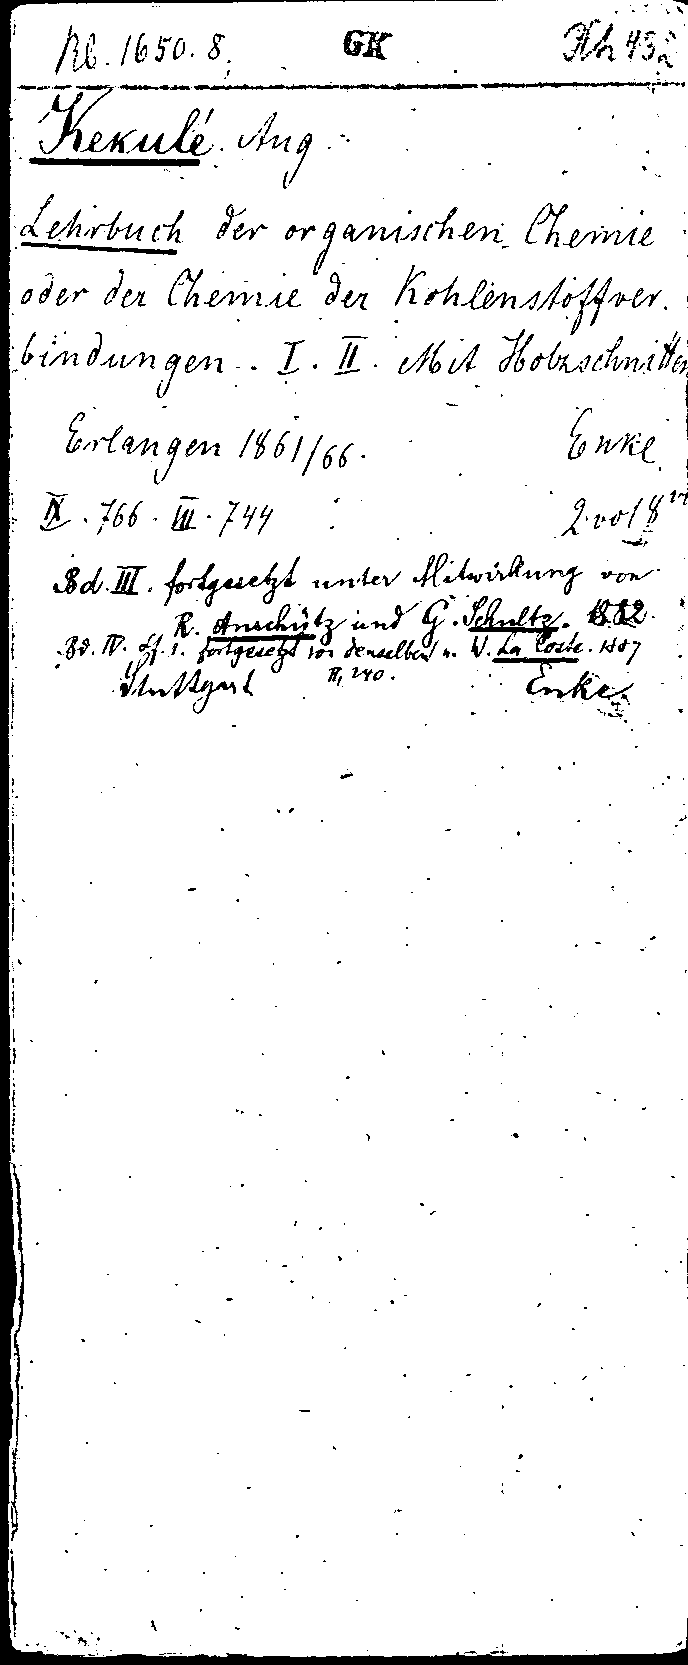 Rb. 1650. 8. GK Kh 432
Kekulé. Aug.
Lehrbuch der organischen Chemie
oder der Chemie der Kohlenstoffver-
bindungen. I. II. Mit Holzschnitten
Erlangen 1861/66. Enke
IX. 766. III. 744 2 vol 8vo
Bd. III. fortgesetzt unter Mitwirkung von
R. Anschütz und G. Schultz. 1882
Bd. IV. Hf. 1. fortgesetzt von denselben u. W. La Coste. 1887
Stuttgart II, 240. Enke.